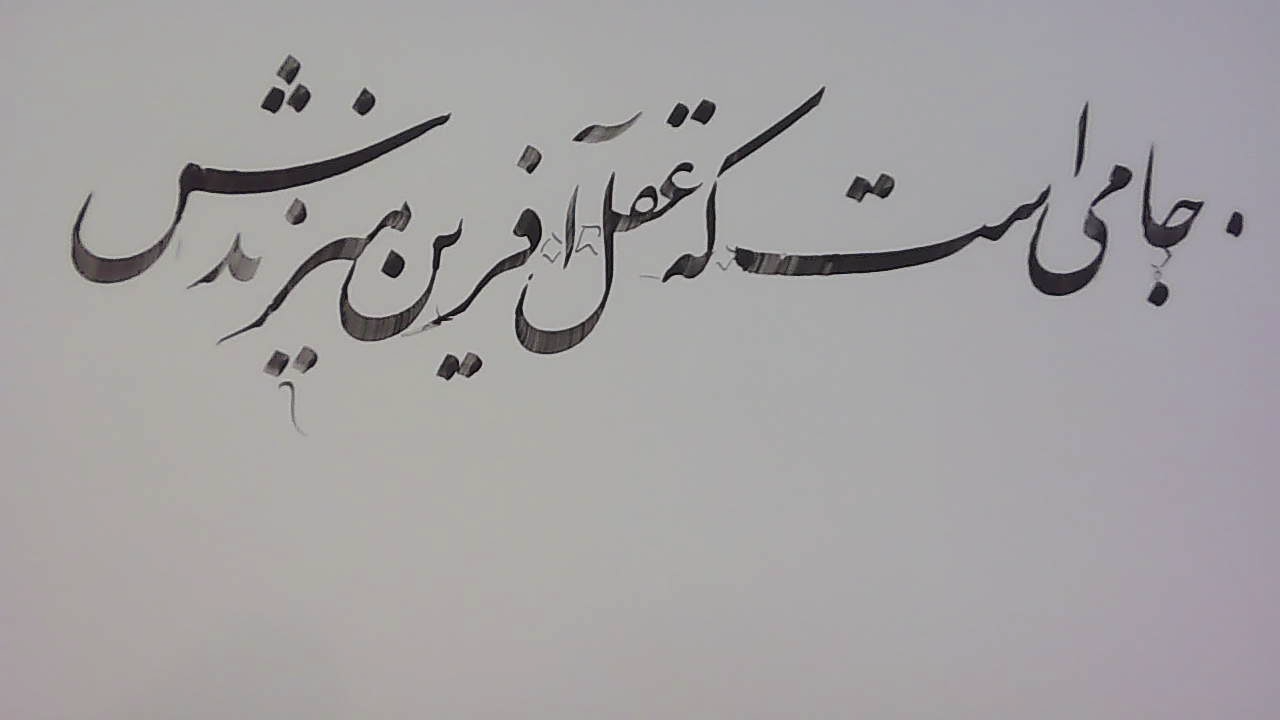 جامی است که عقل آفرین میزندش